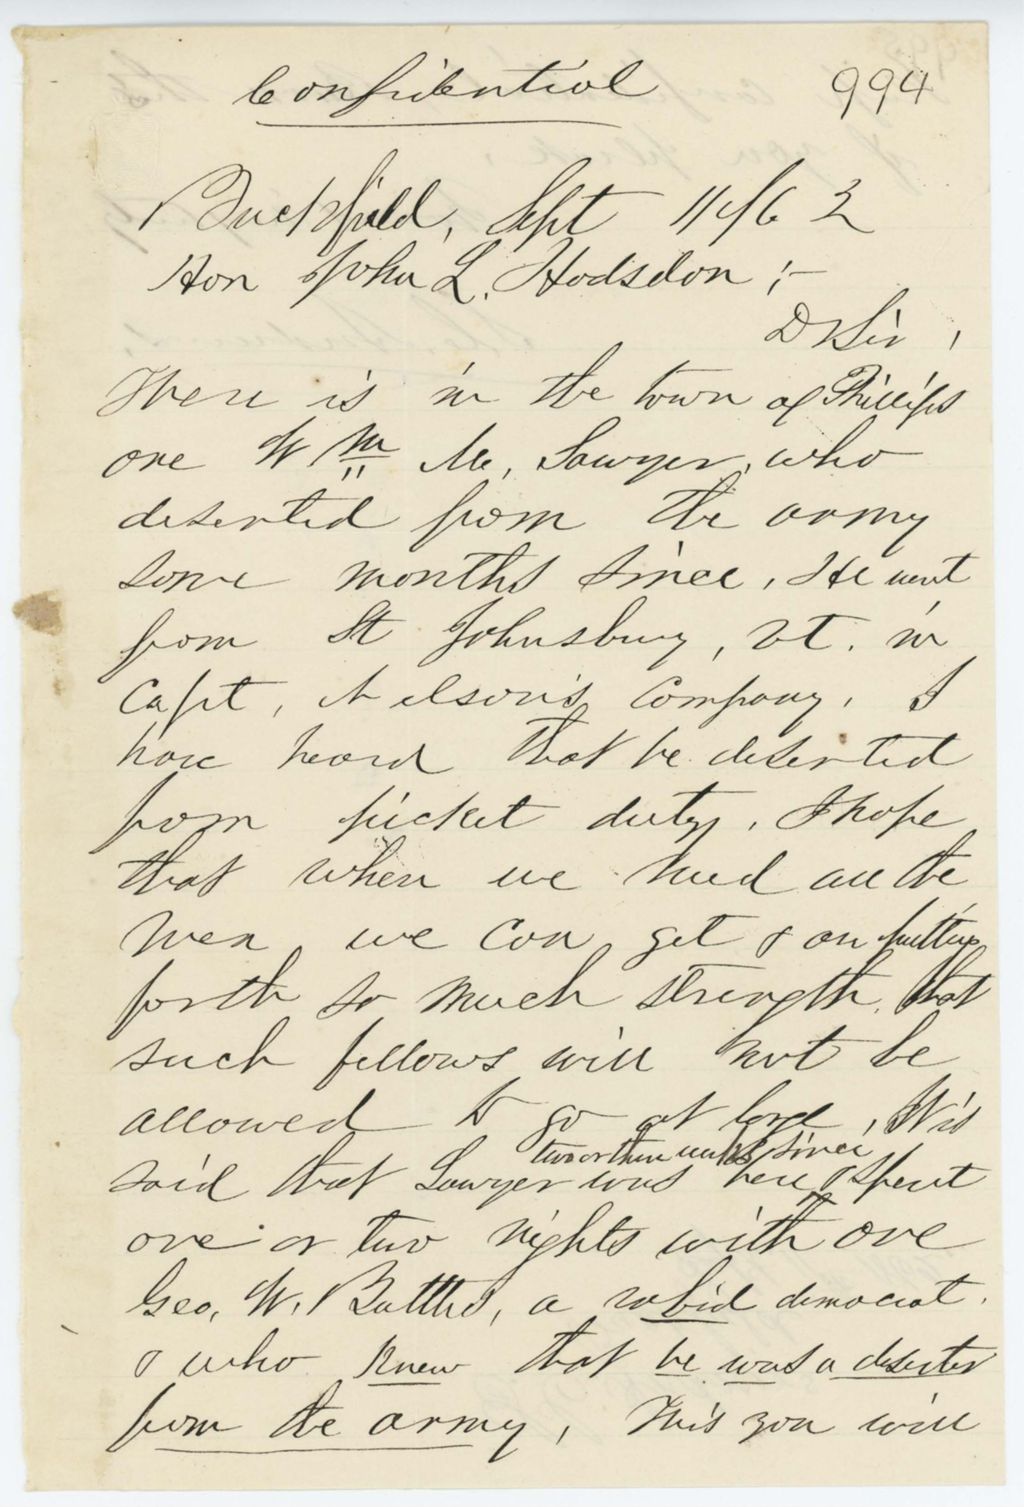 Confidential 994
Buckfield, Sept 11th/63
Hon John L. Hodsdon;-
D Sir,
There is in the town of Phillips
one Wm M. Sawyer, who
deserted from the army
some months since. He went
from St Johnsbury, Vt. in
Capt, Nelson's Company. I
have heard that he deserted
from picket duty. I hope
that when we need all the
men we can get & are putting
forth so much strength, that
such fellows will not be
allowed to go at large. It is
two or three weeks since,
said that Sawyer was here & spent
one or two nights with one
Geo. W. a rabid democrat.
& who knew that he was a deserter
from the army, This you will